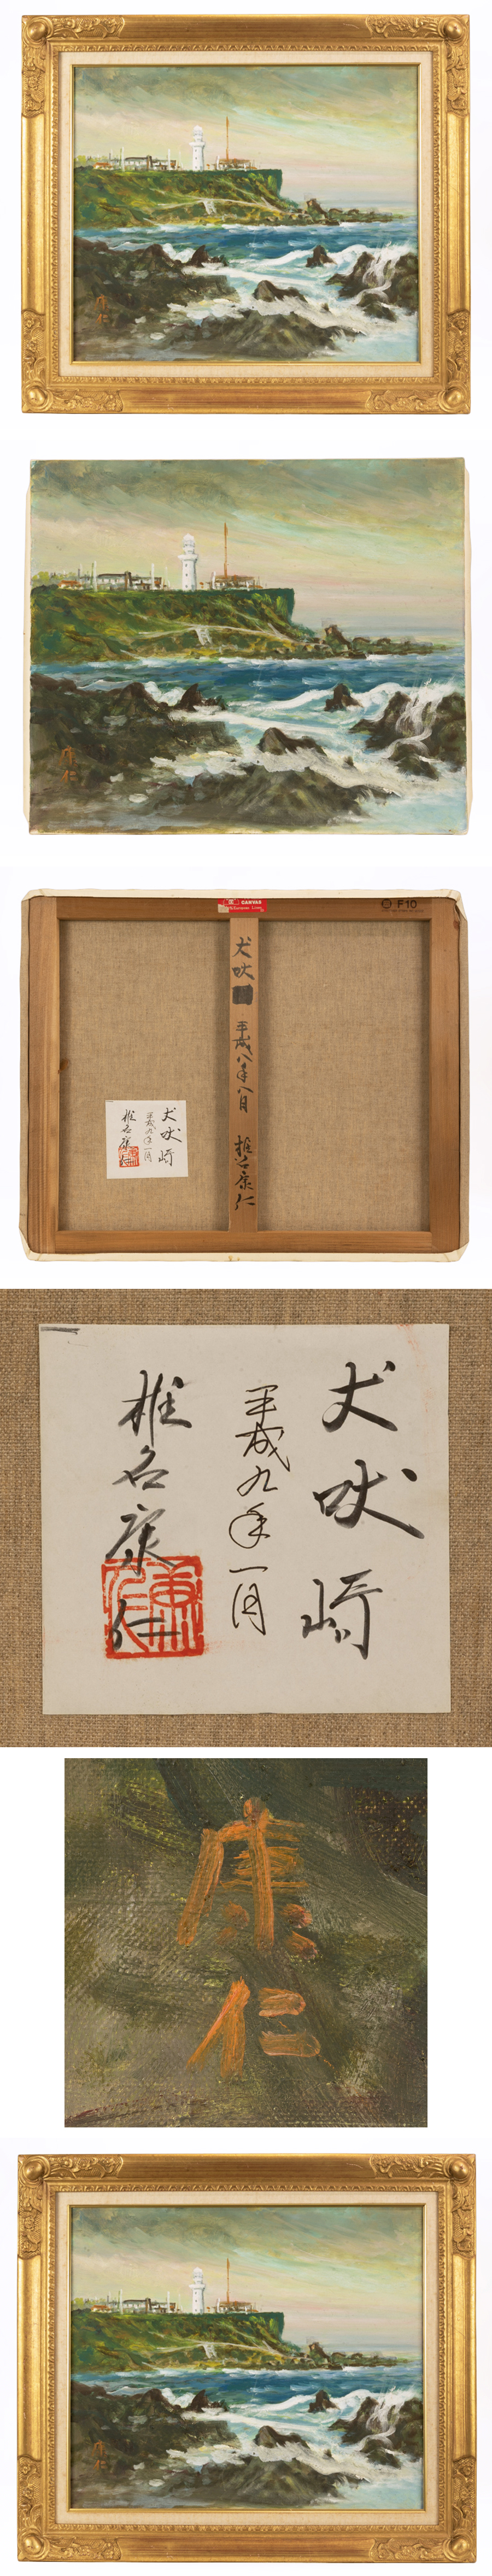 康仁
康仁
CANVAS
F10
犬吠
平成八年八月
椎名康仁
犬吠崎
平成九年一月
椎名康仁
犬吠崎
平成九年一月
椎名康仁
康仁
康仁
康仁